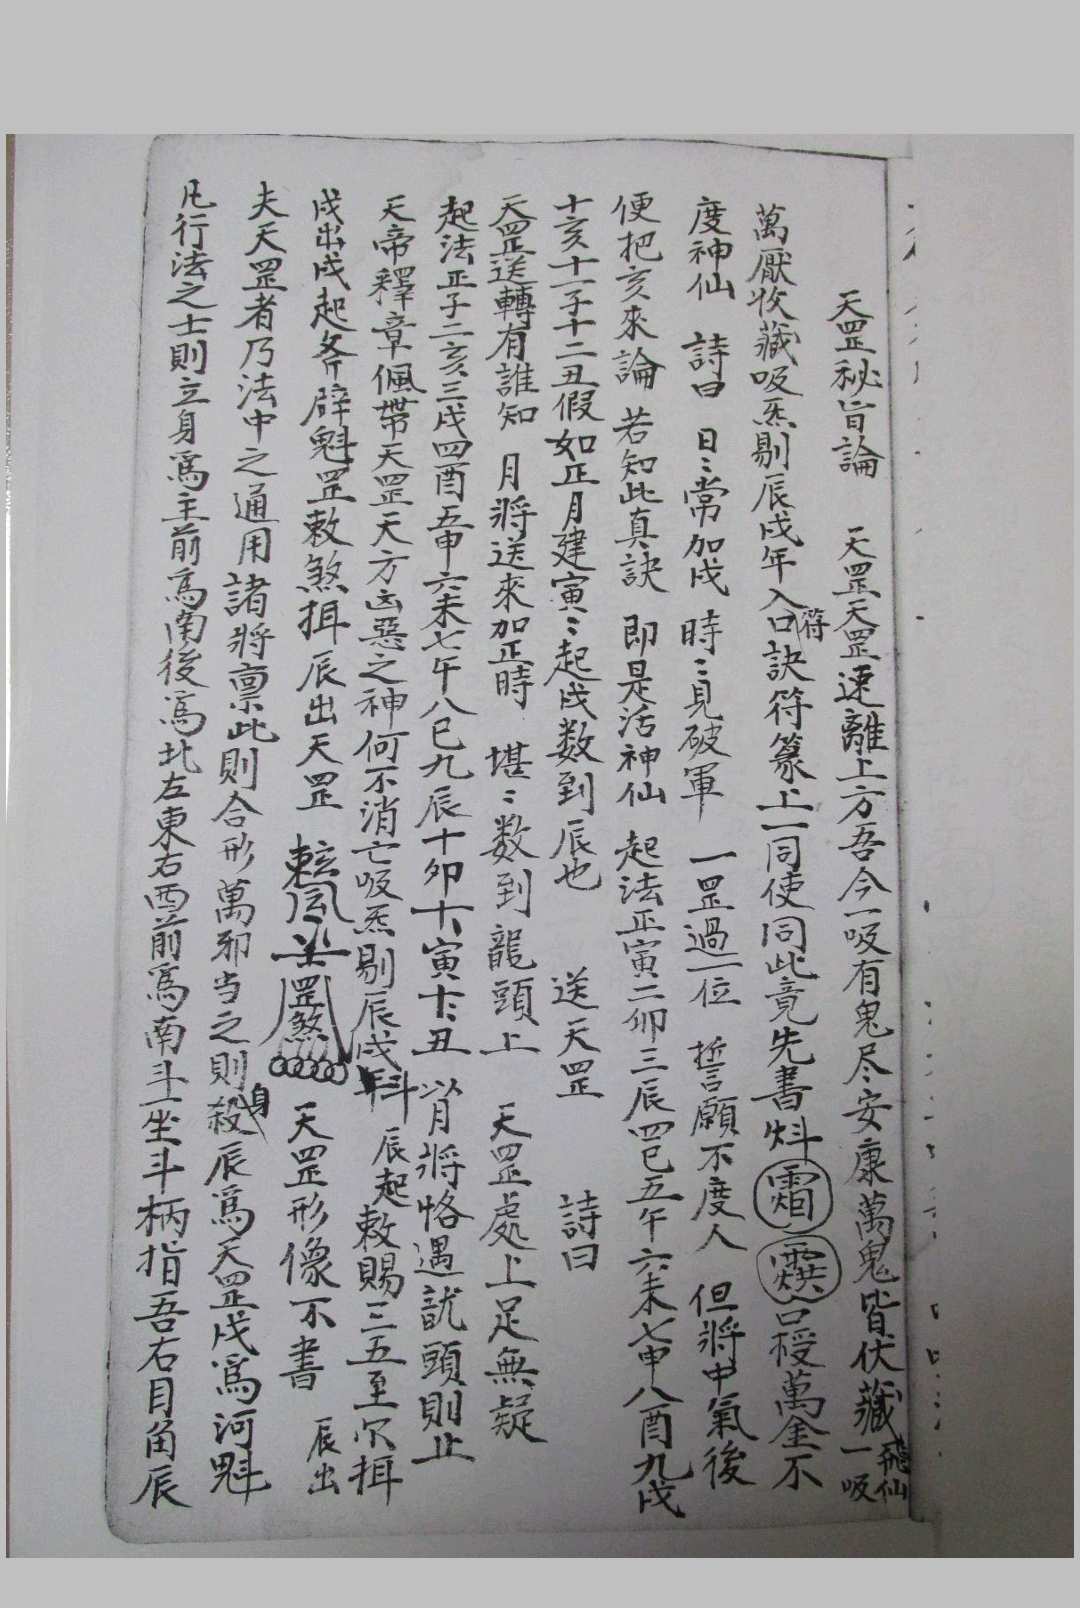 天罡秘旨論　天罡天罡速離上方吾今一吸有鬼尽安康萬鬼皆伏藏一吸飛仙
萬厭收藏吸炁剔辰戌年入符口訣符篆上一同使同此竟先書炓口授萬金不
度神仙　詩曰　日〻常加戌　時〻見破軍　一罡過一位　誓願不度人　但將中氣後
便把亥來論　若知此真訣　即是活神仙　起法正寅二卯三辰四巳五午六未七申八酉九戌
十亥十一子十二丑假如正月建寅〻起戌数到辰也　送天罡　詩曰
天罡送轉有誰知　月將送來加正時　堪〻数到龍頭上　天罡處上足無疑
起法正子二亥三戌四酉五申六未七午八巳九辰十卯十一寅十二丑　以月將恪遇訧頭則止
天帝釋章佩帶天罡天方凶惡之神何不消亡吸炁剔辰戌　辰起敕賜三五至尺揖
戌出戌起斧辟魁罡敕煞揖辰出天罡　罡煞　天罡形像不書　辰出
夫天罡者乃法中之通用諸將稟此則合形萬邪当之則殺身辰爲天罡戌爲河魁
凡行法之士則立身爲主前爲南後爲北左東右酉前爲南斗坐斗柄指吾右目角辰